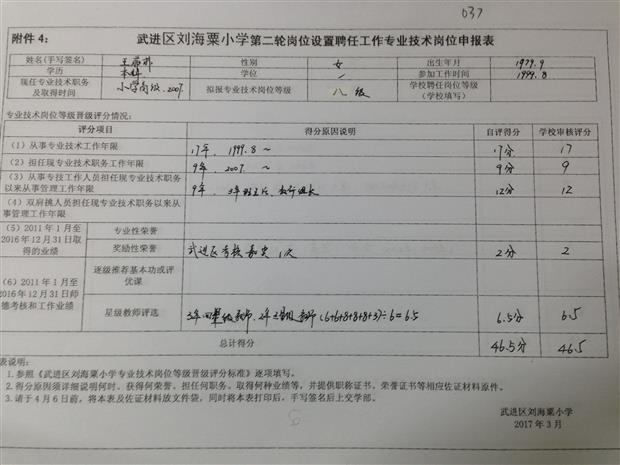 037
附件4：
武进区刘海粟小学第二轮岗位设置聘任工作专业技术岗位申报表
姓名(手写签名) 性别 女 出生年月 1979.9
学历 本科 学位 / 参加工作时间 1999.8
现任专业技术职务及取得时间 小学高级.2007. 拟报专业技术岗位等级 八级 学校聘任岗位等级(学校填写)
专业技术岗位等级晋级评分情况：
评分项目 得分原因说明 自评得分 学校审核评分
(1)从事专业技术工作年限 17年. 1999.8~ 17分 17
(2)担任现专业技术职务工作年限 9年. 2007. ~ 9分 9
(3)从事专技工作人员担任现专业技术职务以来从事管理工作年限 9年. 12分 12
(4)双肩挑人员担任现专业技术职务以来从事管理工作年限
(5)2011年1月至2016年12月31日取得的业绩 专业性荣誉
奖励性荣誉 武进区考核嘉奖 1次 2分 2
(6)2011年1月至2016年12月31日师德考核和工作业绩 逐级推荐基本功或评优课
星级教师评选 (6+6+8+8+8+3)÷6=6.5 6.5分 6.5
总计得分 46.5分 46.5
表说明：
1.参照《武进区刘海粟小学专业技术岗位等级晋级评分标准》逐项填写。
2.得分原因须详细说明何时、获得何荣誉、担任何职务、取得何种业绩等，并提供职称证书、荣誉证书等相应佐证材料原件。
3.请于4月6日前，将本表及佐证材料放文件袋，同时将本表打印后，手写签名后上交学部。
武进区刘海粟小学
2017年3月